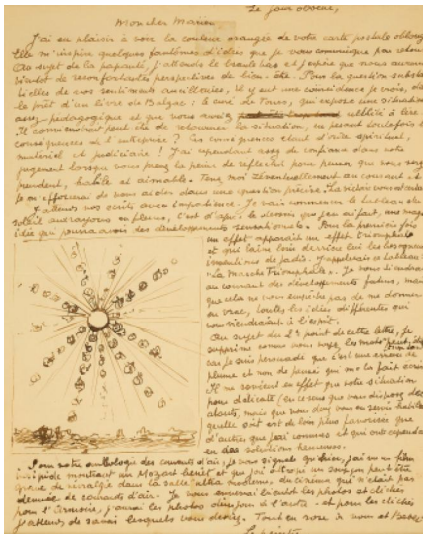 Le jour obscène,
Mon cher Marien
J'ai eu plaisir à voir la couleur orangée de votre carte postale
Elle m'inspire quelques fantômes d'idées que je vous communique par retour
Au sujet de la papauté, j'attends le et j'espère que nous aurons
bientôt de réconfortantes perspectives de bien-être. Pour la question
de vos sentiments il y eut une coïncidence je crois,
le prêt d'un livre de Balzac : le curé de Tours, qui expose une situation
assez pédagogique et que nous avons à
Il conviendrait peut-être de retourner la situation, en pesant toutefois
conséquences de l'entreprise ? conséquences étant d'ordre spirituel,
matériel et judiciaire ! J'ai cependant assez de confiance dans votre
jugement lorsque vous prenez la peine de réfléchir pour penser que vous serez
prudent, habile et aimable. Tenez moi éventuellement au courant et
je m'efforcerai de vous aider dans une question précise. La victoire vous
J'attends vos écrits avec impatience. Je vais commencer le tableau du
soleil aux rayons en fleurs, c'est d'après le dessin que j'en ai fait, une
idée qui pourra avoir des développements sensationnels. Pour la première fois
un effet apparaît un effet triomphal
et qui laisse loin derrière lui les
inventions de jadis. J'appellerais ce tableau
"La Marche Triomphale". Je vous tiendrai
au courant des développements futurs, mais
que cela ne vous empêche pas de me donner
toutes les idées différentes qui
vous viendraient à l'esprit.
Au sujet du 2e point de cette lettre, je
supprime comme vous voyez, les mots
car je suis persuadé que c'est une erreur de
plume et non de pensée qui me l'a fait écrire
Il me revient en effet que votre situation
pour délicate (en ce sens que vous disposez des
atouts, mais que vous devez vous en servir habilement
quelle soit est de loin plus favorisée que
d'autres que j'ai connues et qui ont cependant
eu des solutions heureuses.
Pour notre anthologie des courants d'air, je vous signale qu'hier, j'ai vu un film
montrant un Mozart et qui j'ai attrapé un soupçon peut être
de névralgie dans la salle ultra moderne, du cinéma qui n'était pas
démunie de courants d'air. Je vous enverrai bientôt les photos et clichés
pour l'armoire, j'aurai les photos d'un jour à l'autre - et pour les clichés
j'attends de savoir lesquels vous désirez. Tout en rose à vous et